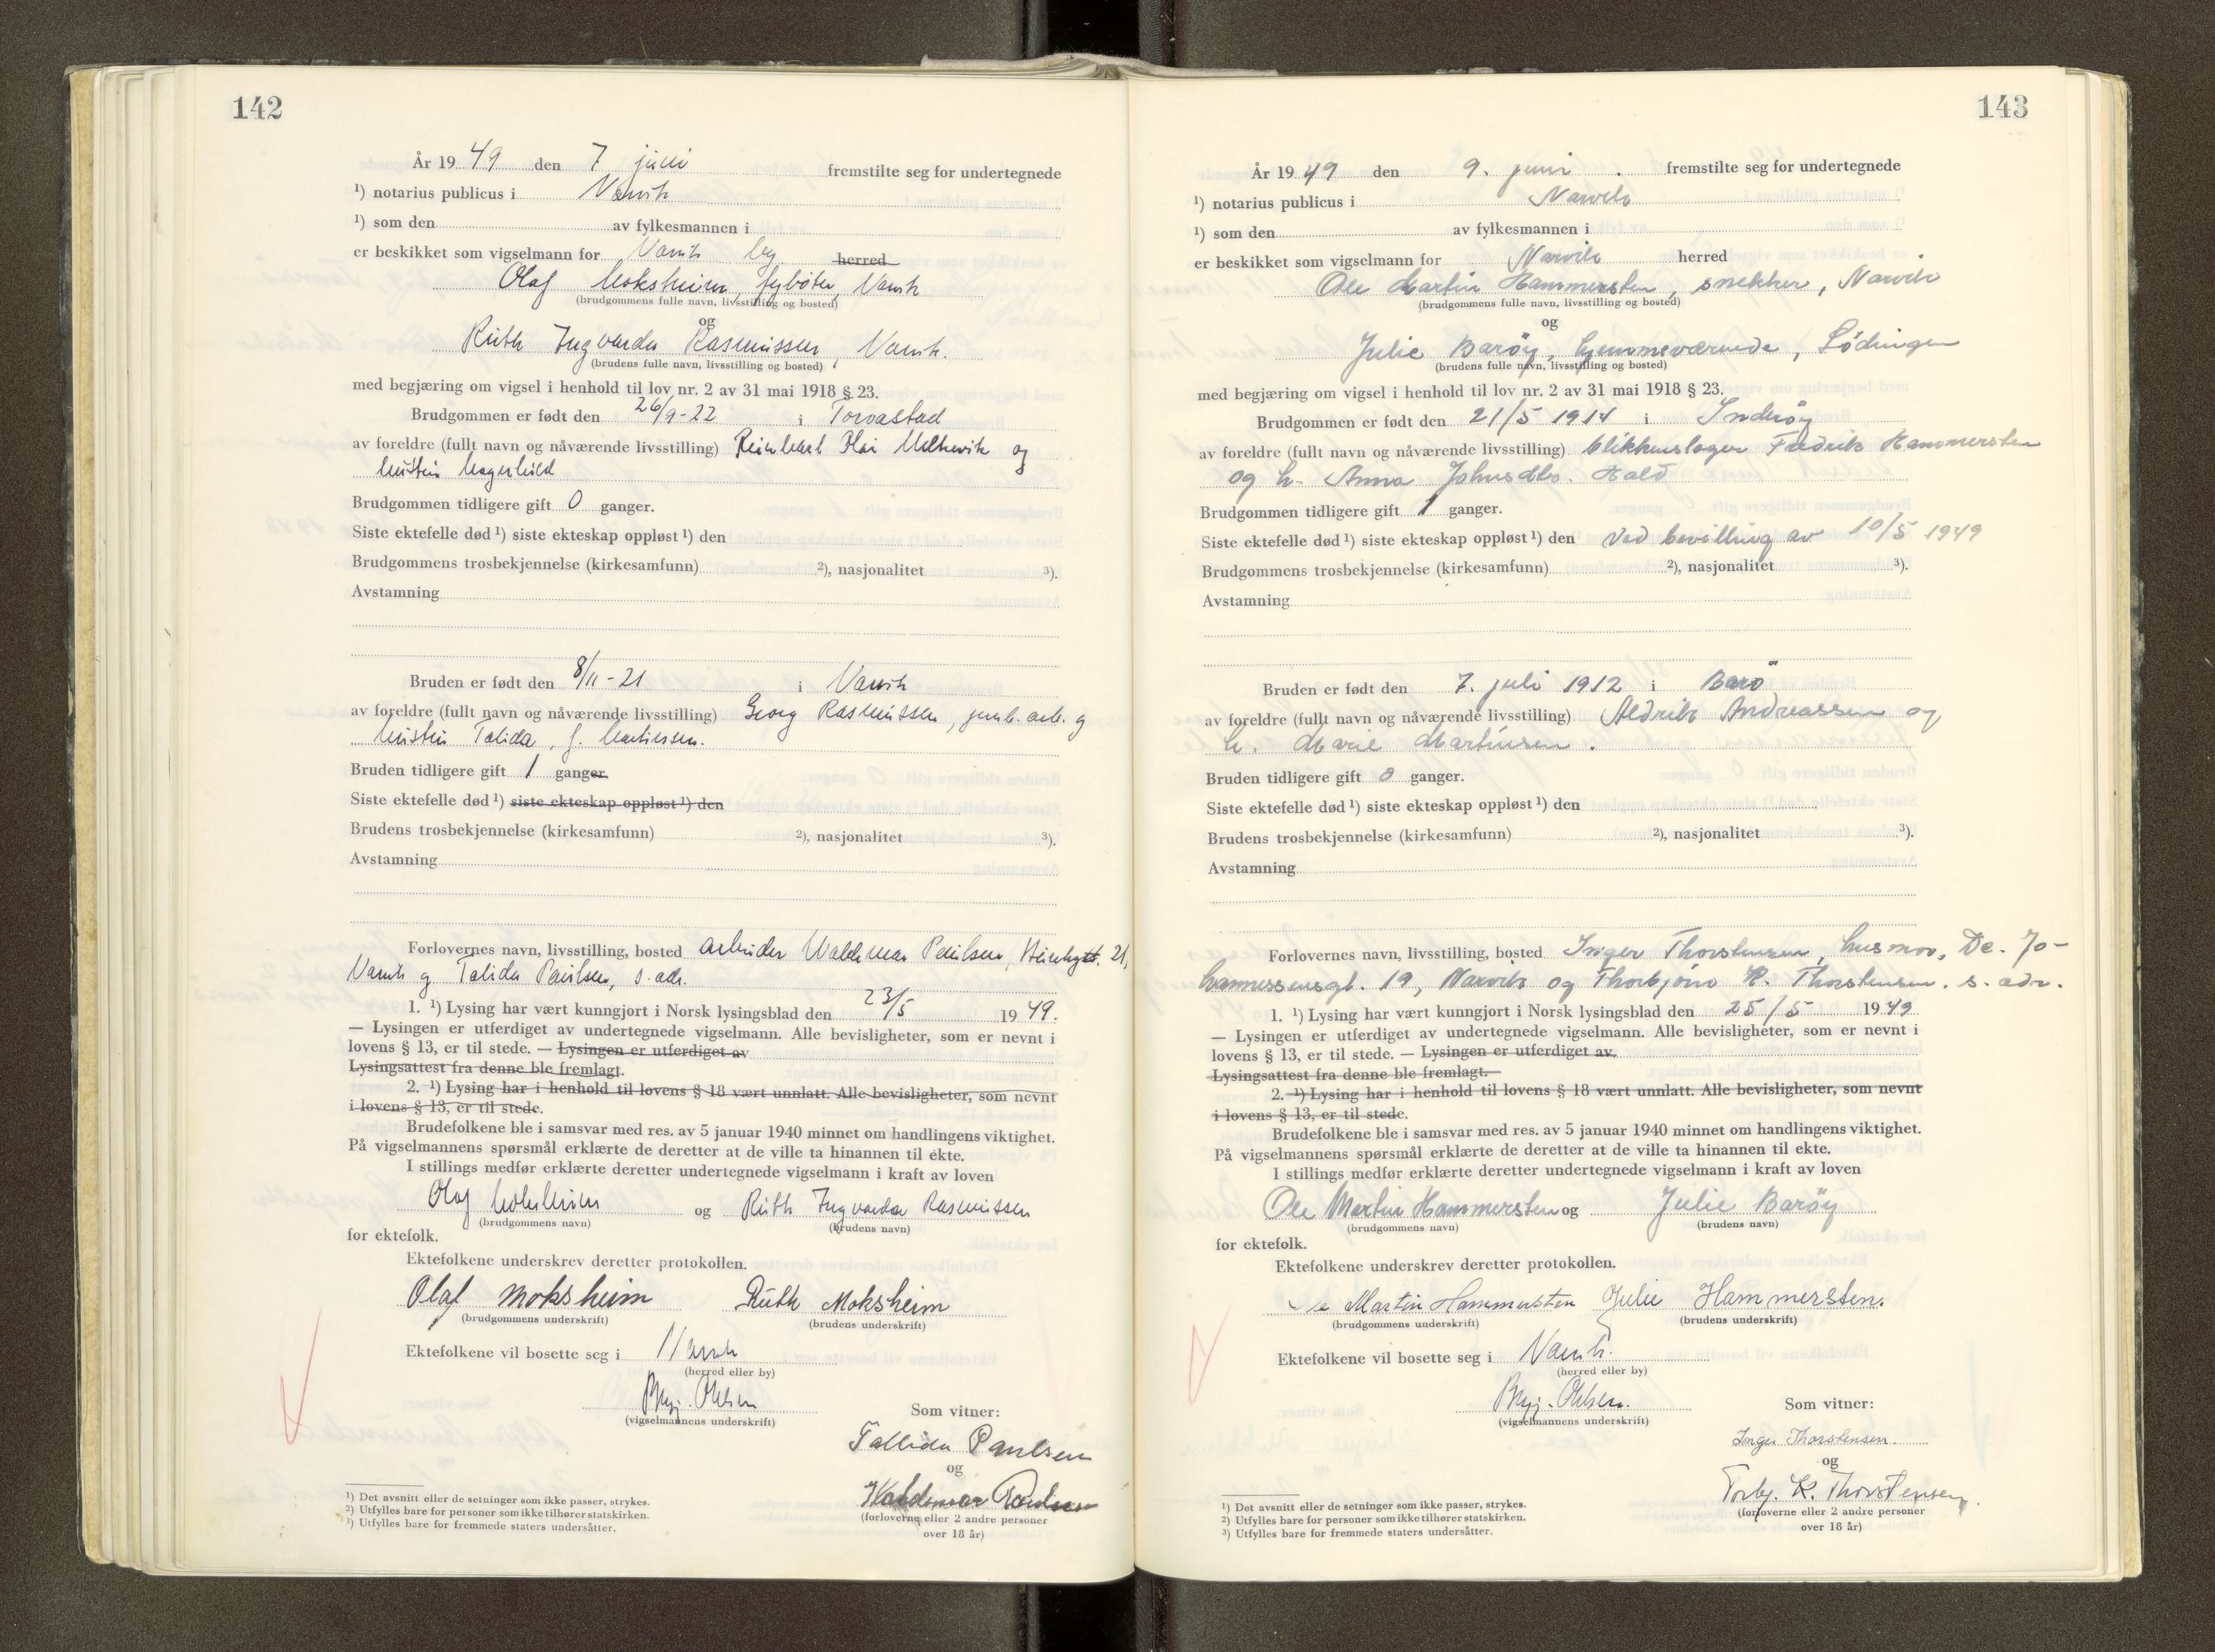 142
År 19 49 den 7 juni fremstilte seg for undertegnede
¹) notarius publicus i Narvik
¹) som den av fylkesmannen i
er beskikket som vigselmann for Narvik by herred
Olaf Moksheim, Narvik
(brudgommens fulle navn, livsstilling og bosted)
og
Ruth Ingvarda Rasmussen, Narvik.
(brudens fulle navn, livsstilling og bosted)
med begjæring om vigsel i henhold til lov nr. 2 av 31 mai 1918 § 23.
Brudgommen er født den 26/9-22 i Torvastad
av foreldre (fullt navn og nåværende livsstilling) Olai og
hustru
Brudgommen tidligere gift 0 ganger.
Siste ektefelle død ¹) siste ekteskap oppløst ¹) den
Brudgommens trosbekjennelse (kirkesamfunn) ²), nasjonalitet ³).
Avstamning
Bruden er født den 8/11-21 i Narvik
av foreldre (fullt navn og nåværende livsstilling) Georg Rasmussen, jernb.arb. og
hustru Talida, f. Martinssen.
Bruden tidligere gift 1 ganger
Siste ektefelle død ¹) siste ekteskap oppløst ¹) den
Brudens trosbekjennelse (kirkesamfunn) ²), nasjonalitet ³).
Avstamning
Forlovernes navn, livsstilling, bosted arbeider Waldemar Paulsen, 21,
Narvik og Talida Paulsen, s. adr.
1. ¹) Lysing har vært kunngjort i Norsk lysingsblad den 23/5 19 49.
— Lysingen er utferdiget av undertegnede vigselmann. Alle bevisligheter, som er nevnt i
lovens § 13, er til stede. — Lysingen er utferdiget av
Lysingsattest fra denne ble fremlagt.
2. ¹) Lysing har i henhold til lovens § 18 vært unnlatt. Alle bevisligheter, som nevnt
i lovens § 13, er til stede.
Brudefolkene ble i samsvar med res. av 5 januar 1940 minnet om handlingens viktighet.
På vigselmannens spørsmål erklærte de deretter at de ville ta hinannen til ekte.
I stillings medfør erklærte deretter undertegnede vigselmann i kraft av loven
Olaf Moksheim og Ruth Ingvarda Rasmussen
(brudgommens navn) (brudens navn)
for ektefolk.
Ektefolkene underskrev deretter protokollen.
Olaf Moksheim Ruth Moksheim
(brudgommens underskrift) (brudens underskrift)
Ektefolkene vil bosette seg i Narvik
(herred eller by)
Ohlsen
(vigselmannens underskrift)
Som vitner:
Tallida Paulsen
og
Waldemar Paulsen
(forloverne eller 2 andre personer
over 18 år)
¹) Det avsnitt eller de setninger som ikke passer, strykes.
²) Utfylles bare for personer som ikke tilhører statskirken.
³) Utfylles bare for fremmede staters undersåtter.
143
År 19 49 den 9. juni fremstilte seg for undertegnede
¹) notarius publicus i Narvik
¹) som den av fylkesmannen i
er beskikket som vigselmann for Narvik herred
Ole Martin Hammersten, snekker, Narvik
(brudgommens fulle navn, livsstilling og bosted)
og
Julie Barøy, hjemmeværende, Lødingen
(brudens fulle navn, livsstilling og bosted)
med begjæring om vigsel i henhold til lov nr. 2 av 31 mai 1918 § 23.
Brudgommen er født den 21/5 1914 i Inderøy
av foreldre (fullt navn og nåværende livsstilling) blikkenslager Fredrik Hammersten
og h. Anna Johnsdtr. Hald
Brudgommen tidligere gift 1 ganger.
Siste ektefelle død ¹) siste ekteskap oppløst ¹) den ved bevilling av 10/5 1949
Brudgommens trosbekjennelse (kirkesamfunn) ²), nasjonalitet ³).
Avstamning
Bruden er født den 7. juli 1912 i Barø
av foreldre (fullt navn og nåværende livsstilling) Aldrik Andreassen og
h. Marie Martinsen.
Bruden tidligere gift 0 ganger.
Siste ektefelle død ¹) siste ekteskap oppløst ¹) den
Brudens trosbekjennelse (kirkesamfunn) ²), nasjonalitet ³).
Avstamning
Forlovernes navn, livsstilling, bosted Inger Thorstensen, husmor, De. Jo-
hannessensgt. 19, Narvik og Thorbjørn K. Thorstensen. s. adr.
1. ¹) Lysing har vært kunngjort i Norsk lysingsblad den 25/5 19 49
— Lysingen er utferdiget av undertegnede vigselmann. Alle bevisligheter, som er nevnt i
lovens § 13, er til stede. — Lysingen er utferdiget av.
Lysingsattest fra denne ble fremlagt.
2. ¹) Lysing har i henhold til lovens § 18 vært unnlatt. Alle bevisligheter, som nevnt
i lovens § 13, er til stede.
Brudefolkene ble i samsvar med res. av 5 januar 1940 minnet om handlingens viktighet.
På vigselmannens spørsmål erklærte de deretter at de ville ta hinannen til ekte.
I stillings medfør erklærte deretter undertegnede vigselmann i kraft av loven
Ole Martin Hammersten og Julie Barøy
(brudgommens navn) (brudens navn)
for ektefolk.
Ektefolkene underskrev deretter protokollen.
Ole Martin Hammersten Julie Hammersten.
(brudgommens underskrift) (brudens underskrift)
Ektefolkene vil bosette seg i Narvik.
(herred eller by)
Ohlsen.
(vigselmannens underskrift)
Som vitner:
Inger Thorstensen
og
Torbj. K. Thorstensen.
(forloverne eller 2 andre personer
over 18 år)
¹) Det avsnitt eller de setninger som ikke passer, strykes.
²) Utfylles bare for personer som ikke tilhører statskirken.
³) Utfylles bare for fremmede staters undersåtter.